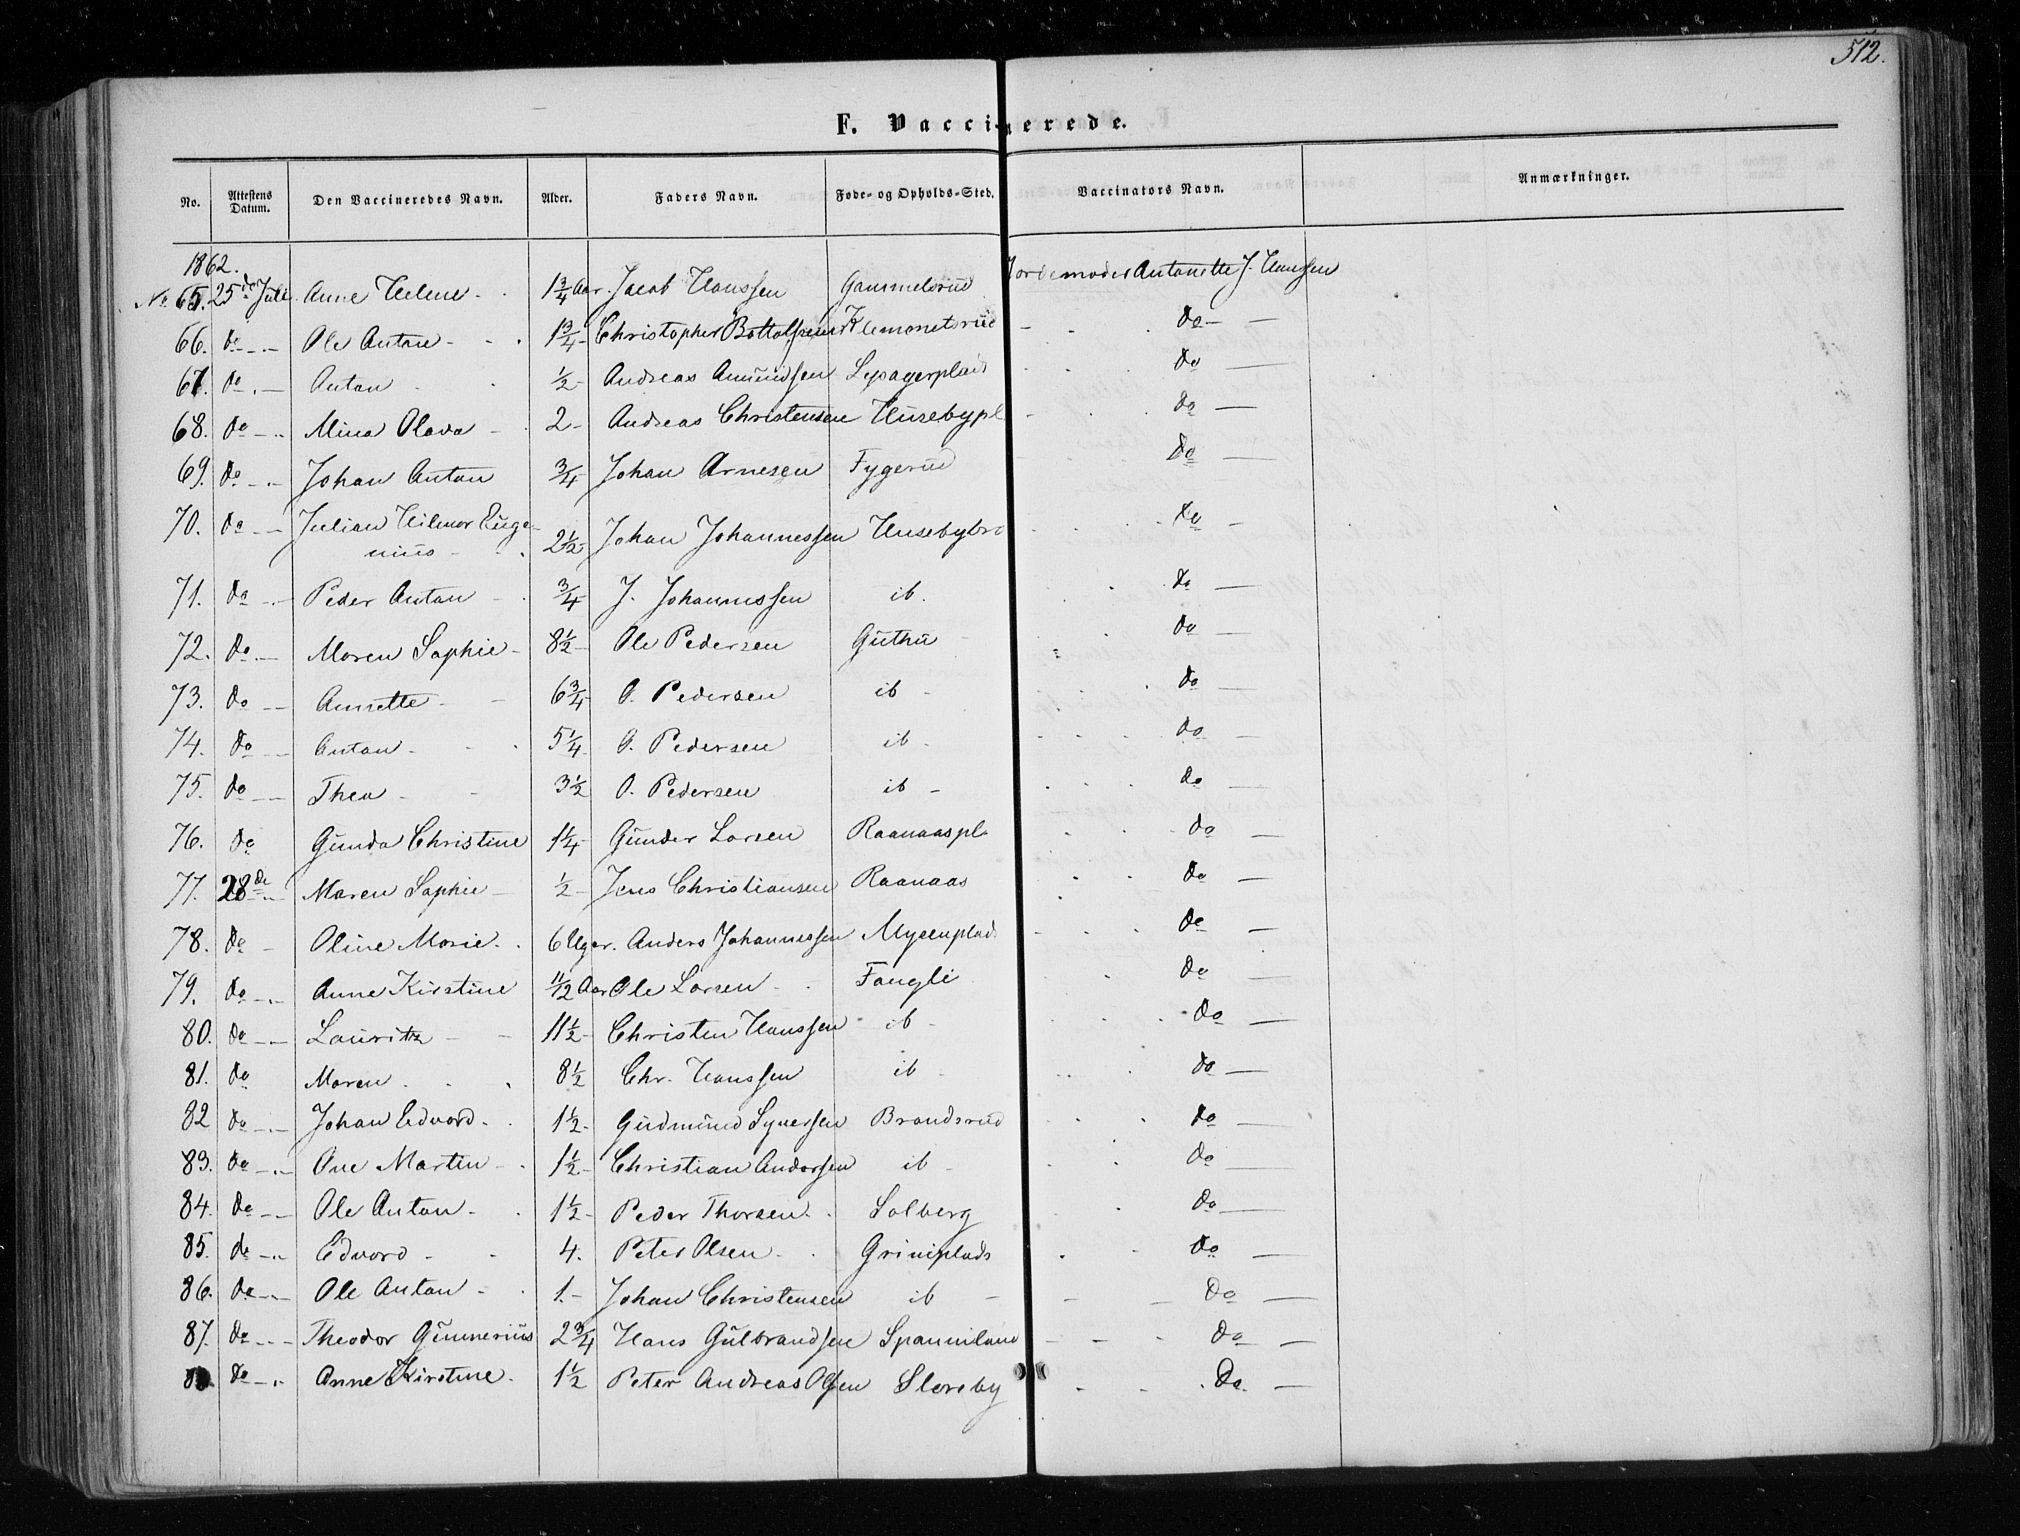 512.
F. Vaccinerede.
No. Attestens Datum. Den Vaccineredes Navn. Alder. Faders Navn. Føde- og Opholds-Sted. Vaccinators Navn. Anmærkninger.
1862.
No 65. 25de Juli Anne Helene 1 3/4 Aar. Jacob Hanssen Gammelsrud Jordemoder Antonette J. Hanssen
66. do Ole Anton 1 3/4 Christopher Klemmetsrud do
67. do Anton 1/2 Andreas Amundsen do
68. do Mina Olava 2 Andreas Christensen Husebypl do
69. do Johan Anton 3/4 Johan Arnesen Fygerud do
70. do Julian Hilmar Euge-
nius 2 1/2 Johan Johannessen do
71. do Peder Anton 3/4 J. Johannessen ib. do
72. do Maren Sophie 8 1/2 Ole Pedersen Guthu do
73. do Annette 6 3/4 O. Pedersen ib do
74. do Anton 5 1/4 O. Pedersen ib do
75. do Thea 3 1/2 O. Pedersen ib do
76. do Gunda Christine 1 1/4 Gunder Larsen Raanaaspl do
77. 28de Maren Sophie 1/2 Jens Christiansen Raanaas do
78. do Oline Marie 6 Uger. Anders Johannessen Mysenplads do
79. do Anne Kirstine 11/12 Aar Ole Larsen Fangli do
80. do Lauritz 11 1/2 Christen Hanssen ib do
81. do Maren 8 1/2 Chr. Hanssen ib do
82 do Johan Edvard 1 1/2 Gudmund Syversen Brandsrud do
83. do Ove Martin 1 1/2 Christian Andersen ib do
84. do Ole Anton 1 1/2 Peder Thorsen Solberg do
85. do Edvard 4. Peter Olsen Griniplads do
86. do Ole Anton 1. Johan Christensen ib do
87. do Theodor Gunnerius 2 3/4 Hans Gulbrandsen do
do Anne Kirstine 1 1/2 Peter Andreas Olsen Sloreby do